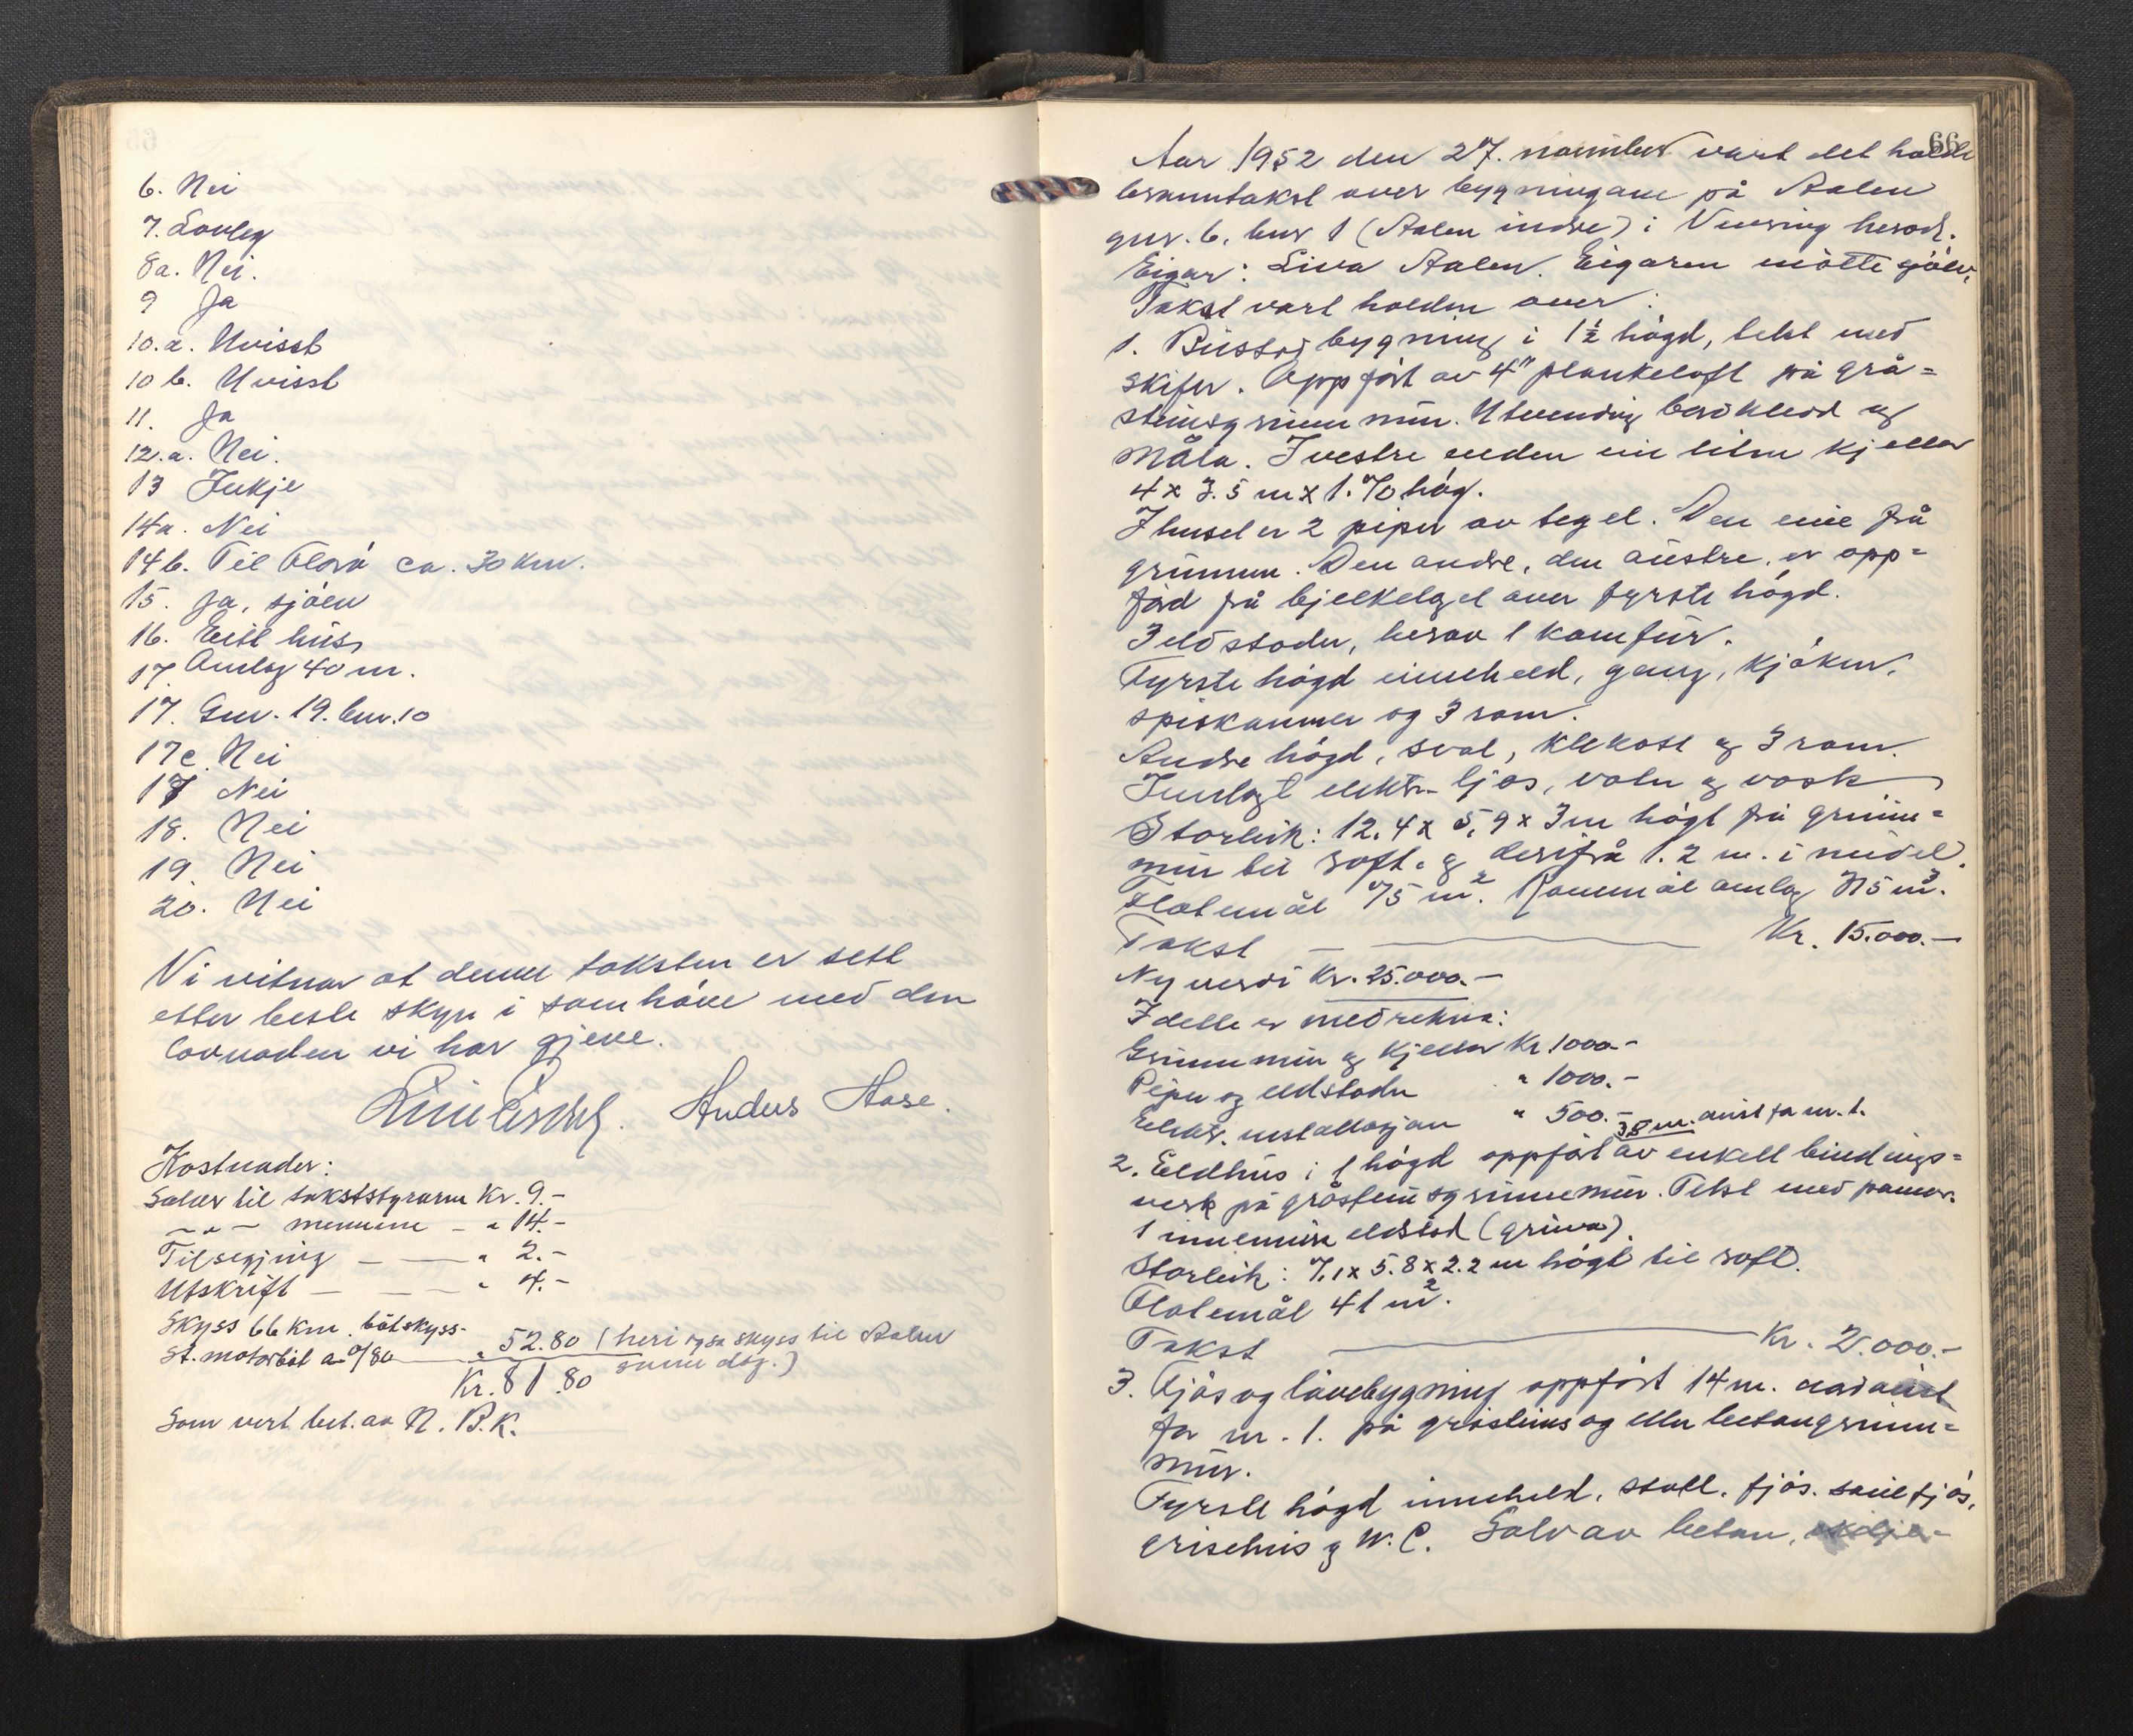 6. Nei
7. Lovleg
8a. Nei.
9 Ja
10.a. Uvisst
10 b. Uvisst
11. Ja
12.a. Nei.
13 Inkje
14a. Nei
14b. Til Florö ca. 30 km.
15. Ja, sjöen
16. Eitt hus
17 Omlag 40 m.
17. Gnr. 19. bnr. 10
17c. Nei
17 Nei
18. Nei
19 Nei
20. Nei
Vi vitnar at denne taksten er sett
etter beste skyn i samhöve med den
lovnaden vi har gjeve.
Anders Aase.
Kostnader:
Salær til takststyraren Kr. 9.-
-"- mennene - " 14.-
Tilsegjing - — " 2.-
Utskrift — — " 4.-
Skyss 66 km. båtskyss-
St. motorbåt a 0/80 — " 52.80 (heri og sa skyss til Aalen
same dag.)
Kr. 81.80
Som vert bet. av N. B. K.
66
Aar 1952 den 27. november vart det halde
branntakst over bygningane på Aalen
gnr. 6, bnr 1 (Aalen indre) i Vevring herad.
Eigar: Liva Aalen. Eigaren mötte sjölv.
Takst vart halden over:
1. Bustadbygning i 1½ högd, tekt med
skifer. Oppfört av 4" plankeloft på grå=
steinsgrunnmur. Utvendig bordkledd og
måla. I vestre enden ein liten kjellar
4 x 3.5 m x 1.70 hög.
I huset er 2 piper av tegel. Den eine frå
grunnen. Den andre, den austre, er opp=
förd på bjelkelaget over fyrste högd.
3 eldstader, herav 1 komfur.
Fyrste högd inneheld, gang, kjöken,
spiskammer og 3 rom.
Andre högd, sval, klekott og 3 rom.
Innlagt elektr. ljos, vatn og vask
Storleik: 12.4 x 5.9 x 3 m högt frå grunn=
mur til roft. og derifrå 1.2 m. i midel.
Flatemål 75 m². Rommål omlag 315 m³.
Takst — Kr. 15.000.—
Ny verdi Kr. 25.000.—
I dette er medrekna:
Grunnmur og kjellar Kr 1000.-
Piper og eldstader " 1000.-
Elektr. installasjon " 500.-
38 m. aust fa nr. 1.
2. Eldhus i 1 högd oppfört av enkelt bindings=
verk på gråsteinsgrunnmur. Tekt med panner.
1 innemura eldstad (gruva).
Storleik: 7.1 x 5.8 x 2.2 m högt til roft.
Flatemål 41 m².
Takst — Kr. 2.000.-
3. Fjös og lövebygning oppfört 14 m. nordaust
fa nr. 1. på gråsteins og eller betongrunn=
mur.
Fyrste högd inneheld, stall. fjös. sauefjös,
grisehus og W.C. Golv av betong,